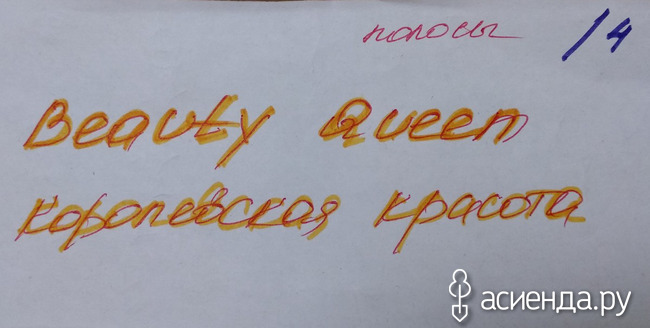 полосы /4
Beauty Queen
королевская красота
асиенда.ру